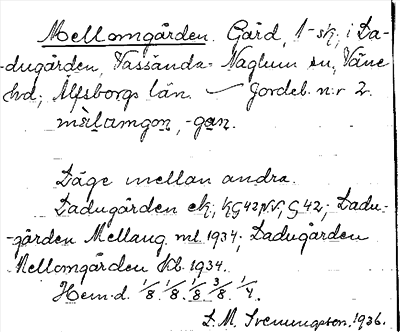 Mellomgården. Gård, 1-sk, i Da-
-dugården, Vassända-Naglum sn, Väne
hd, Älfsborgs län. — Jordeb. n:r 2.
mèlamgọn, -gạn.
Läge mellan andra.
Dadugården ek, KG42NV, G42; Dadu-
-gården Mellang. ml 1934; Dadugården
Mellomgården Kb. 1934.
Hem.d. 1/8 1/8 1/8 3/8 1/4.
L. M. Svenungsson, 1936.